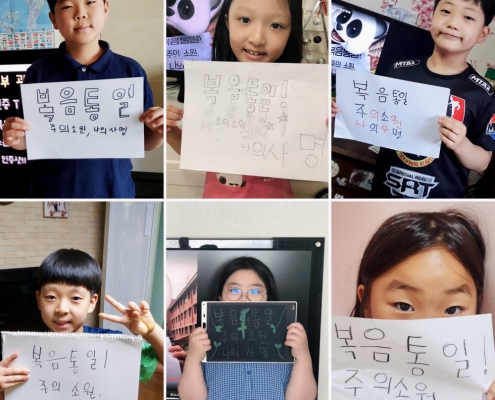 복음통일
주의소원, 나의사명
복음통일!
주의소원
나의사명
MTAL
복음통일
주의소원
나의사명
SPECIAL REAL
SRT
복음통일!
주의 소원,
복음통일!
나의사명
복음통일!
주의소원